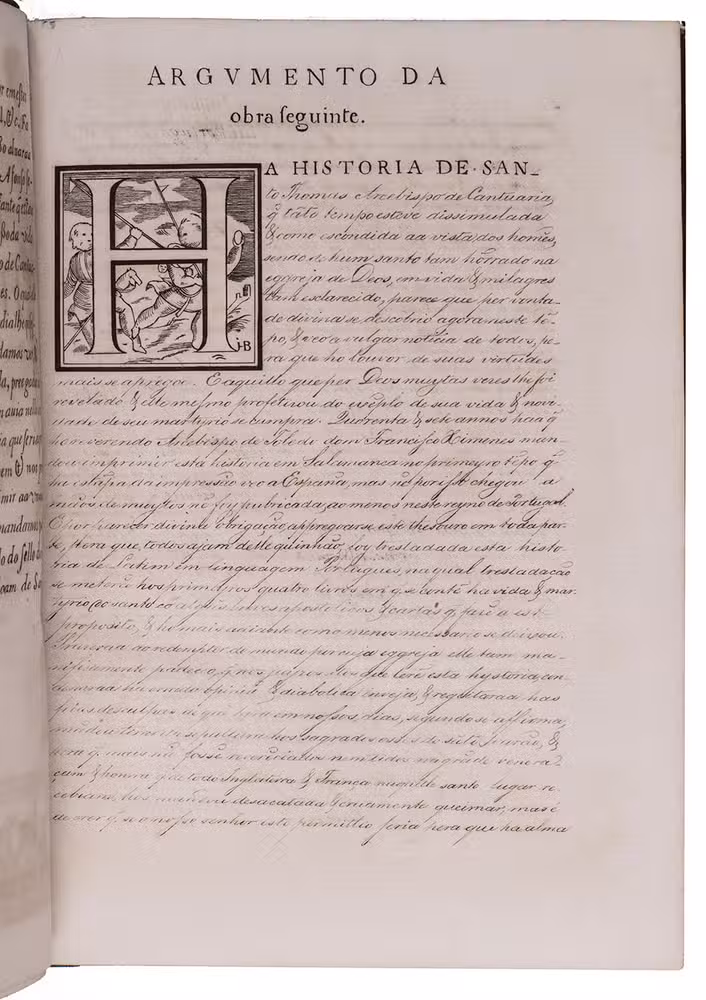 ARGVMENTO DA
obra ſeguinte.
HA HISTORIA DE·SAN-
to Thomas Arcebispo de Cantuaria,
q̃ tãto tempo esteve dissimulada
& como escondida aa vista dos homẽs,
sendo de hum santo tam hõrrado na
eggreja de Deos, em vida & milagres
tam esclarecido, parece que per vonta-
de divina se descobrio agora neste tẽ-
po, & veo a vulgar noticia de todos, pe-
ra que ho louvor de suas virtudes
mais se apregoe. E aquillo que per Deos muytas vezes lhe foi
revelado & elle mesmo profetizou do exẽplo de sua vida & novi-
dade de seu martyrio se cumpra. Quorenta & sete annos haa q̃
ho reverendo Arcebispo de Toledo dom Francisco Ximenes man-
dou imprimir esta historia em Salamanca no primeyro tẽpo q̃
ha estãpa da impressão veo a España, mas nõ por isso chegou a
de muytos nẽ foy pubricada, ao menos neste reyno de Portugal.
E por parecer divina obrigação appregoarse este thesouro em toda par-
te, & pera que todos ajam delle quinhão, foy tresladada esta histo-
ria de Latim em linguagem Portugues, na qual tresladação
se meterão hos primeyros quatro livros em q̃ se contẽ ha vida & mar-
tyrio do santo cõ algũs apostolicos & cartas q̃ fazẽ a este
proposito, & ho mais adiante como menos necessario se deixou.
ao redemptor do mundo per cuja eggreja elle tam ma-
nificamente padeceo, q̃ nos que lerẽ esta hystoria, con-
& diabolica enveja, &
em nossos dias, segundo se affirma,
hos sagrados ossos &
pera q̃ mais nõ fossẽ reverẽciados nem tidos na grãde venera-
çam & honra q̃ de toda Inglaterra & França naquelle santo lugar re-
cebiam, hos mandou desacatada & cruamente queimar, mas é
de crer q̃ se o nosso senhor isto permittio seria pera que ha alma